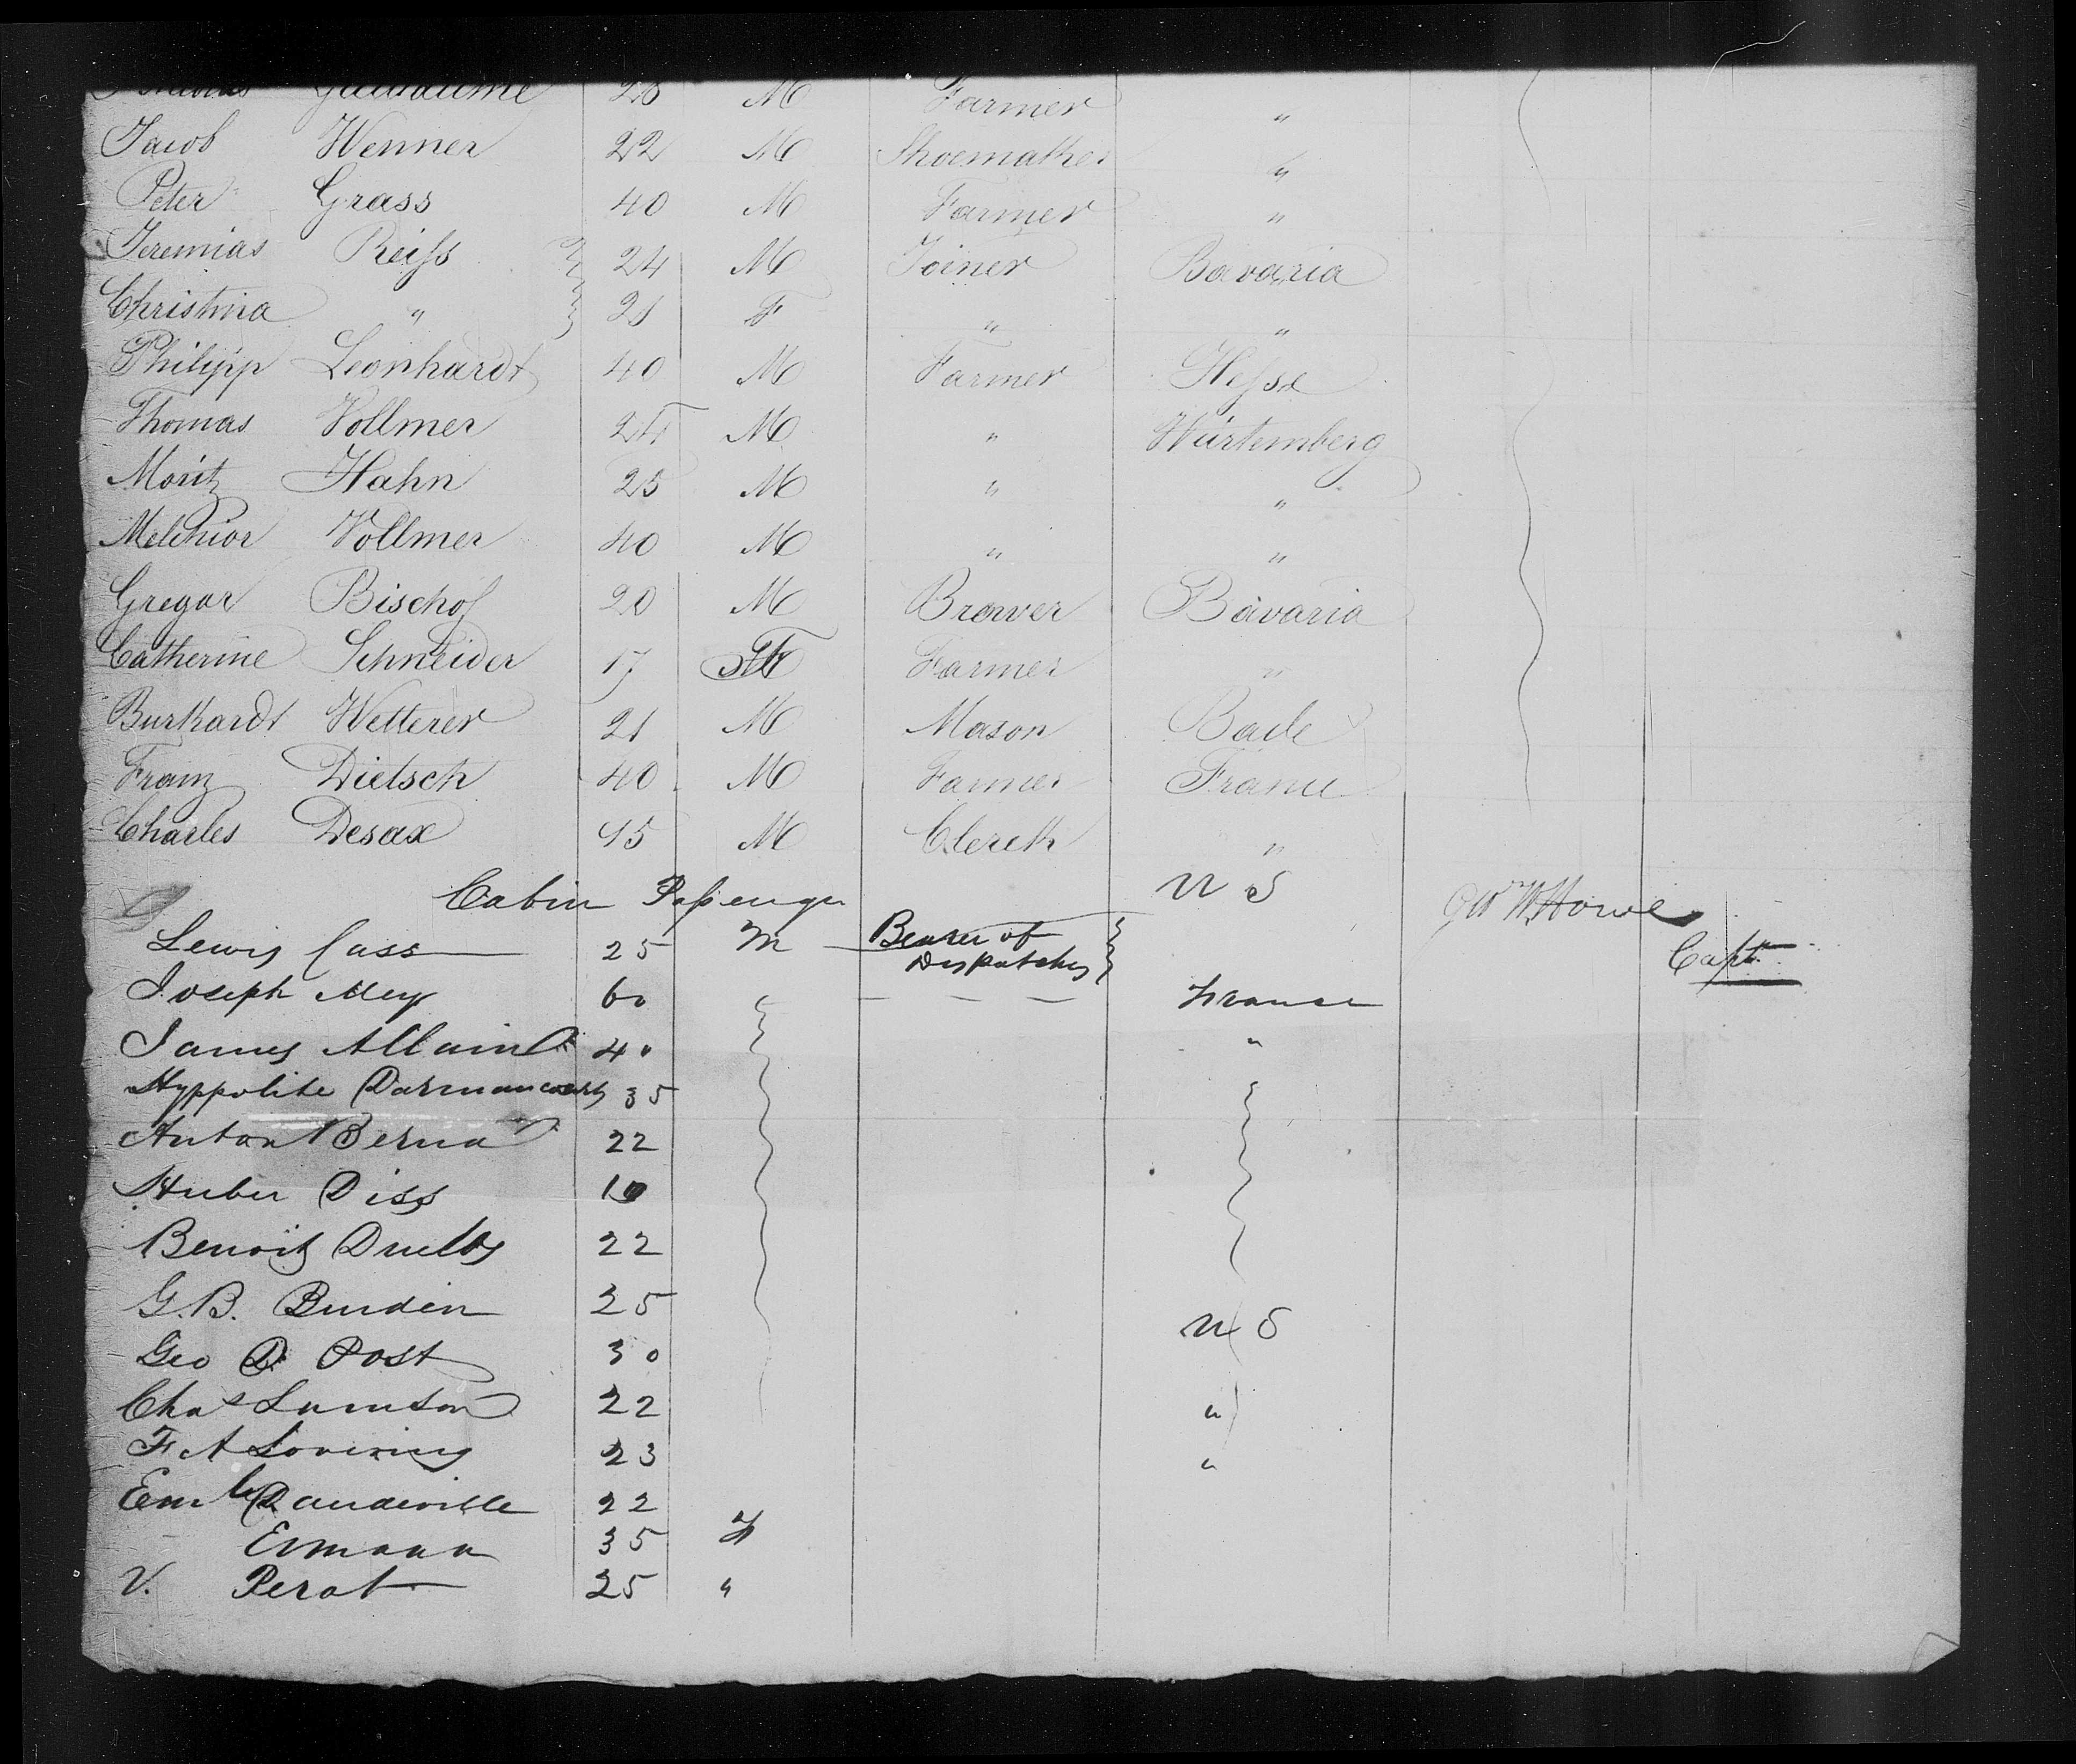 Guillaume 28 M Farmer "
Jacob Wenner 22 M Shoemaker "
Peter Grass 40 M Farmer "
Jeremias Reiss 24 M Joiner Bavaria
Christina " 21 F " "
Philipp Leonhardt 40 M Farmer Hesse
Thomas Vollmer 24 M " Würtemberg
Moritz Hahn 25 M " "
Melchior Vollmer 40 M " "
Gregor Bischof 20 M Brewer Bavaria
Catherine Schneider 17 F Farmer "
Burkhardt Wetterer 21 M Mason Bade
Franz Dietsch 40 M Farmer France
Charles Desax 45 M Clerck "
Cabin Passenger U S Geo W Howe
Lewis Cass 25 M Bearer of Dispatches Capt.
Joseph Mey 60 France
James Allain 40 "
Hyppolite Darmancourt 35
Anton Berna 22
Huber Diss
Benoit 22
G. B. Burden 25 U S
Geo D Post 30
Chas Lamson 22 "
F A Lovering 23 "
Daudeville 22
Ermann 35 F
V. Perot 25 "